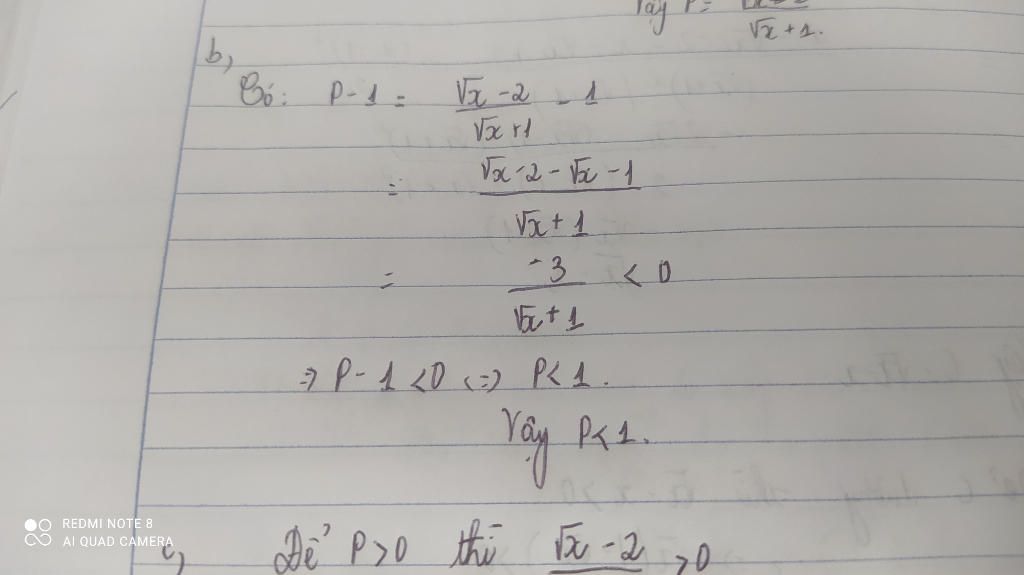 Vậy P = √x - 2 / √x + 1.
b,
Có: P - 1 = √x - 2 / √x + 1 - 1
= √x - 2 - √x - 1 / √x + 1
= -3 / √x + 1 < 0
=> P - 1 < 0 <=> P < 1.
Vậy P < 1.
REDMI NOTE 8
AI QUAD CAMERA
c, Để P > 0 thì √x - 2 > 0